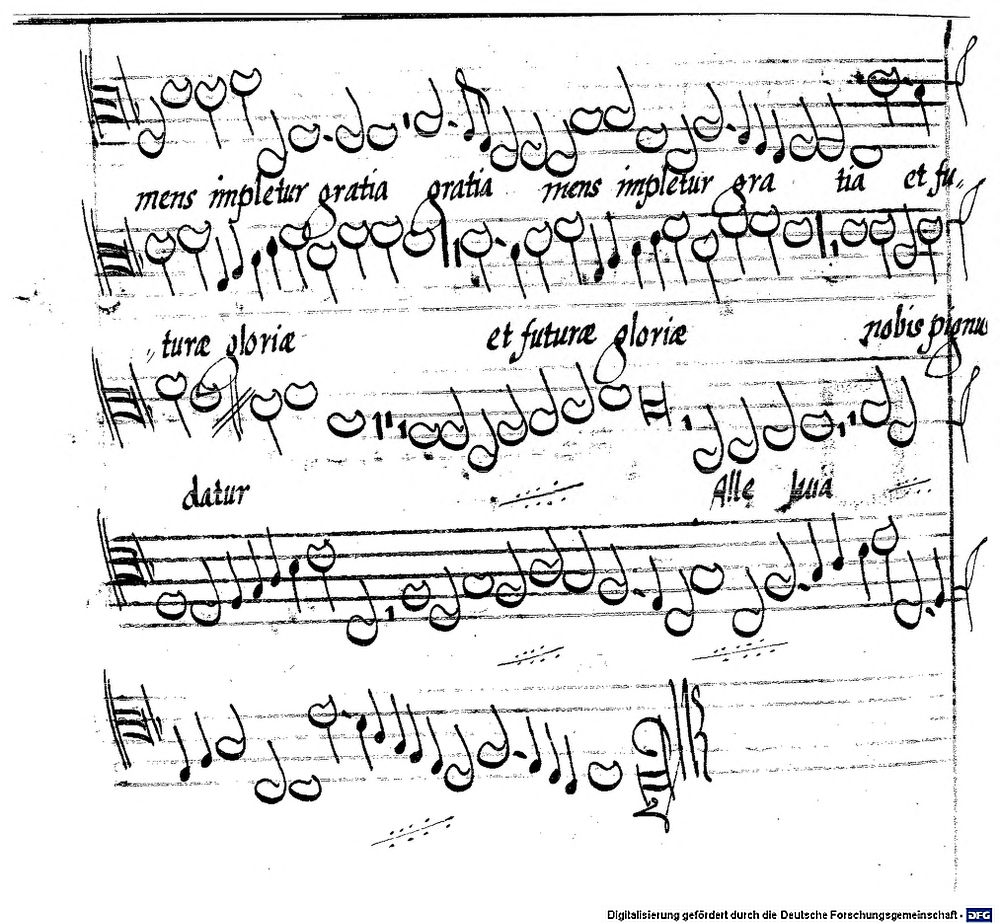 mens impletur gratia gratia mens impletur gra tia et fu„
„turæ gloriæ et futuræ gloriæ nobis pignus
datur Alle luia
Digitalisierung gefördert durch die Deutsche Forschungsgemeinschaft - DFG